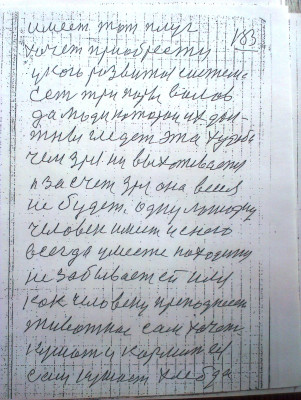 имеет тот плуг
183
хочет приобрести
у кого развитая систем.
сет три пары валов
да люди которои их дол-
жны гледет эта худоба
чем зря ни выхотевает
и за счет зря она
не будет. одну лошадку
человек имеет и сного
всегда уместе находит
не забывает ей или
как человеку преподнест
животное сам хочет
кушат и кормит ей
сам кушает хлеб да